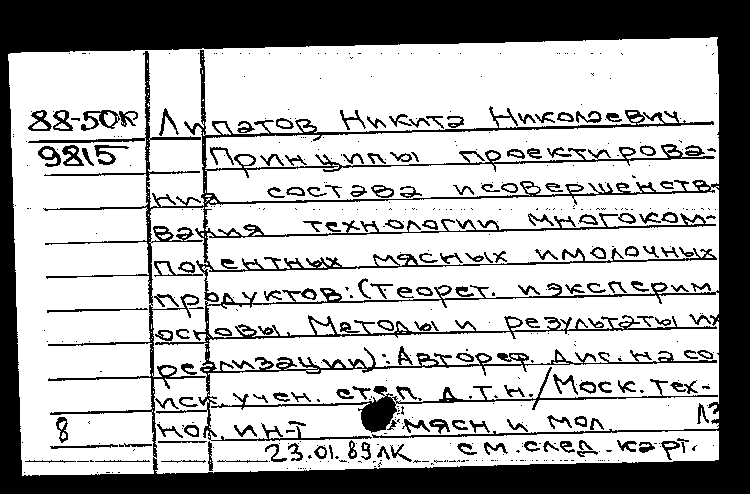 88-50к Липатов, Никита Николаевич.
9815 Принципы проектирова-
ния состава и совершенств.
вания технологии многоком-
понентных мясных и молочных
продуктов: (Теорет. и эксперим.
основы. Методы и результаты их
реализации): Автореф. дис. на со
иск. учен. степ. д.т.н. / Моск. тех-
8 нол. ин-т мясн. и мол. ЛЗ
23.01.89 ЛК см. след. карт.